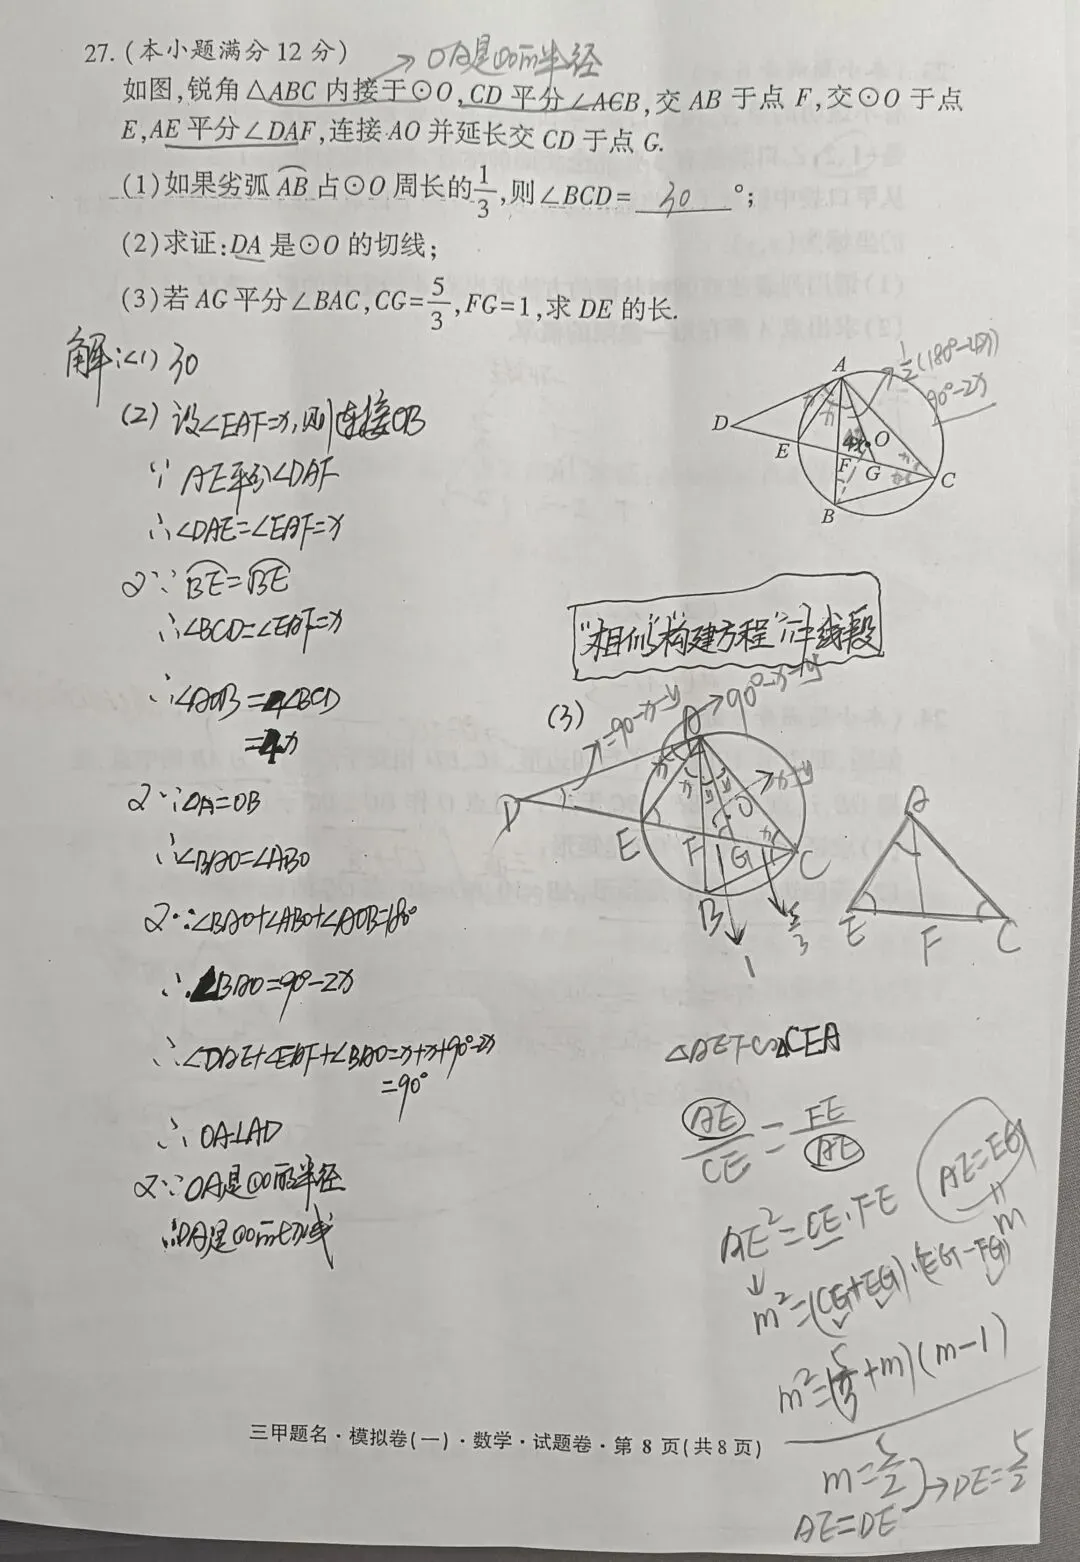 27.(本小题满分12分)
→OA是⊙O的半径
如图,锐角△ABC内接于⊙O,CD平分∠ACB,交AB于点F,交⊙O于点
E,AE平分∠DAF,连接AO并延长交CD于点G.
(1)如果劣弧AB占⊙O周长的1/3,则∠BCD=30°;
(2)求证:DA是⊙O的切线;
(3)若AG平分∠BAC,CG=5/3,FG=1,求DE的长.
解:(1)30
(2)设∠EAF=x,则连接OB
∵AE平分∠DAF
∴∠DAE=∠EAF=x
又∵BE=BE
∴∠BCD=∠EAF=x
∴∠AOB=4∠BCD
=4x
又∵OA=OB
∴∠BAO=∠ABO
又∵∠BAO+∠ABO+∠AOB=180°
∴∠BAO=90°-2x
∴∠DAE+∠EAF+∠BAO=x+x+90°-2x
=90°
∴OA⊥AD
又∵OA是⊙O的半径
∴DA是⊙O的切线
1/2(180°-4x)
90°-2x
A
D
E
O
F
G
C
B
x
x
"相似"构建方程"求线段
(3)
=90-x-y
90°-x-y
A
x
x
y
y
x+y
D
E
F
O
G
C
B
x
1
5/3
A
E
F
C
△AEF∽△CEA
AE/CE=FE/AE
AE=EG
=
m
AE²=CE·FE
m²=(CG+EG)·(EG-FG)
m²=(5/3+m)(m-1)
m=5/2
AE=DE
→DE=5/2
三甲题名·模拟卷(一)·数学·试题卷·第8页(共8页)